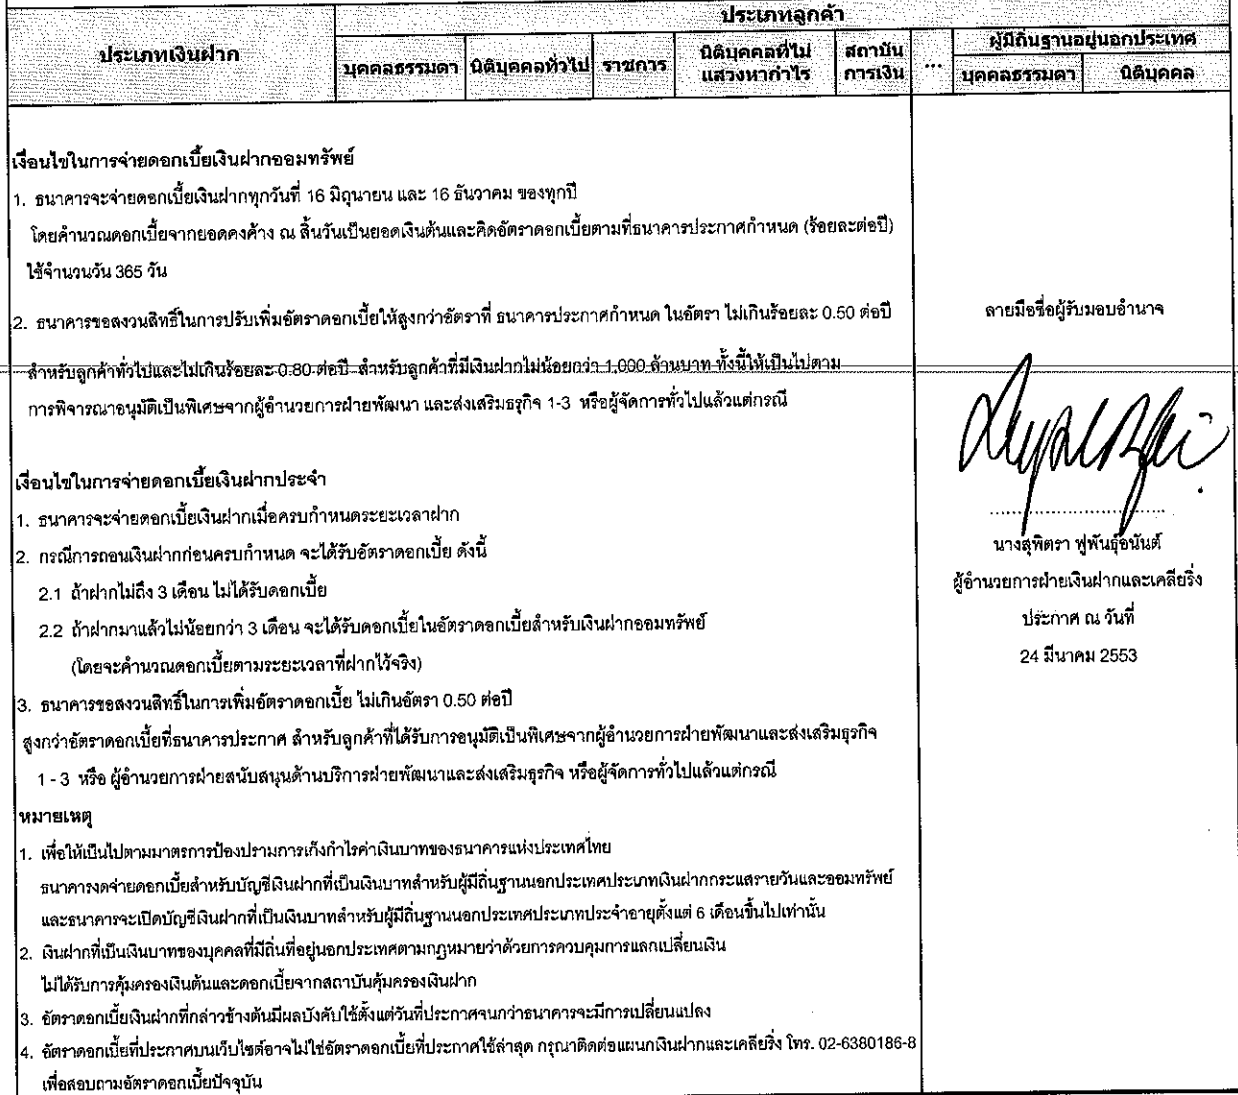 ประเภทลูกค้า
ประเภทเงินฝาก
บุคคลธรรมดา นิติบุคคลทั่วไป ราชการ นิติบุคคลที่ไม่แสวงหากำไร สถาบันการเงิน ... ผู้มีถิ่นฐานอยู่นอกประเทศ
บุคคลธรรมดา นิติบุคคล
เงื่อนไขในการจ่ายดอกเบี้ยเงินฝากออมทรัพย์
1. ธนาคารจะจ่ายดอกเบี้ยเงินฝากทุกวันที่ 16 มิถุนายน และ 16 ธันวาคม ของทุกปี
โดยคำนวณดอกเบี้ยจากยอดคงค้าง ณ สิ้นวันเป็นยอดเงินต้นและคิดอัตราดอกเบี้ยตามที่ธนาคารประกาศกำหนด (ร้อยละต่อปี)
ใช้จำนวนวัน 365 วัน
2. ธนาคารขอสงวนสิทธิ์ในการปรับเพิ่มอัตราดอกเบี้ยให้สูงกว่าอัตราที่ ธนาคารประกาศกำหนด ในอัตรา ไม่เกินร้อยละ 0.50 ต่อปี
สำหรับลูกค้าทั่วไปและไม่เกินร้อยละ 0.80 ต่อปี สำหรับลูกค้าที่มีเงินฝากไม่น้อยกว่า 1,000 ล้านบาท ทั้งนี้ให้เป็นไปตาม
การพิจารณาอนุมัติเป็นพิเศษจากผู้อำนวยการฝ่ายพัฒนา และส่งเสริมธรุกิจ 1-3 หรือผู้จัดการทั่วไปแล้วแต่กรณี
เงื่อนไขในการจ่ายดอกเบี้ยเงินฝากประจำ
1. ธนาคารจะจ่ายดอกเบี้ยเงินฝากเมื่อครบกำหนดระยะเวลาฝาก
2. กรณีการถอนเงินฝากก่อนครบกำหนด จะได้รับอัตราดอกเบี้ย ดังนี้
2.1 ถ้าฝากไม่ถึง 3 เดือน ไม่ได้รับดอกเบี้ย
2.2 ถ้าฝากมาแล้วไม่น้อยกว่า 3 เดือน จะได้รับดอกเบี้ยในอัตราดอกเบี้ยสำหรับเงินฝากออมทรัพย์
(โดยจะคำนวณดอกเบี้ยตามระยะเวลาที่ฝากไว้จริง)
3. ธนาคารขอสงวนสิทธิ์ในการเพิ่มอัตราดอกเบี้ย ไม่เกินอัตรา 0.50 ต่อปี
สูงกว่าอัตราดอกเบี้ยที่ธนาคารประกาศ สำหรับลูกค้าที่ได้รับการอนุมัติเป็นพิเศษจากผู้อำนวยการฝ่ายพัฒนาและส่งเสริมธุรกิจ
1 - 3 หรือ ผู้อำนวยการฝ่ายสนับสนุนด้านบริการฝ่ายพัฒนาและส่งเสริมธุรกิจ หรือผู้จัดการทั่วไปแล้วแต่กรณี
หมายเหตุ
1. เพื่อให้เป็นไปตามมาตรการป้องปรามการเก็งกำไรค่าเงินบาทของธนาคารแห่งประเทศไทย
ธนาคารงดจ่ายดอกเบี้ยสำหรับบัญชีเงินฝากที่เป็นเงินบาทสำหรับผู้มีถิ่นฐานนอกประเทศประเภทเงินฝากกระแสรายวันและออมทรัพย์
และธนาคารจะเปิดบัญชีเงินฝากที่เป็นเงินบาทสำหรับผู้มีถิ่นฐานนอกประเทศประเภทประจำอายุตั้งแต่ 6 เดือนขึ้นไปเท่านั้น
2. เงินฝากที่เป็นเงินบาทของบุคคลที่มีถิ่นที่อยู่นอกประเทศตามกฎหมายว่าด้วยการควบคุมการแลกเปลี่ยนเงิน
ไม่ได้รับการคุ้มครองเงินต้นและดอกเบี้ยจากสถาบันคุ้มครองเงินฝาก
3. อัตราดอกเบี้ยเงินฝากที่กล่าวข้างต้นมีผลบังคับใช้ตั้งแต่วันที่ประกาศจนกว่าธนาคารจะมีการเปลี่ยนแปลง
4. อัตราดอกเบี้ยที่ประกาศบนเว็บไซต์อาจไม่ใช่อัตราดอกเบี้ยที่ประกาศใช้ล่าสุด กรุณาติดต่อแผนกเงินฝากและเคลียริ่ง โทร. 02-6380186-8
เพื่อสอบถามอัตราดอกเบี้ยปัจจุบัน
ลายมือชื่อผู้รับมอบอำนาจ
นางสุพิตรา ฟูพันธุ์อนันต์
ผู้อำนวยการฝ่ายเงินฝากและเคลียริ่ง
ประกาศ ณ วันที่
24 มีนาคม 2553